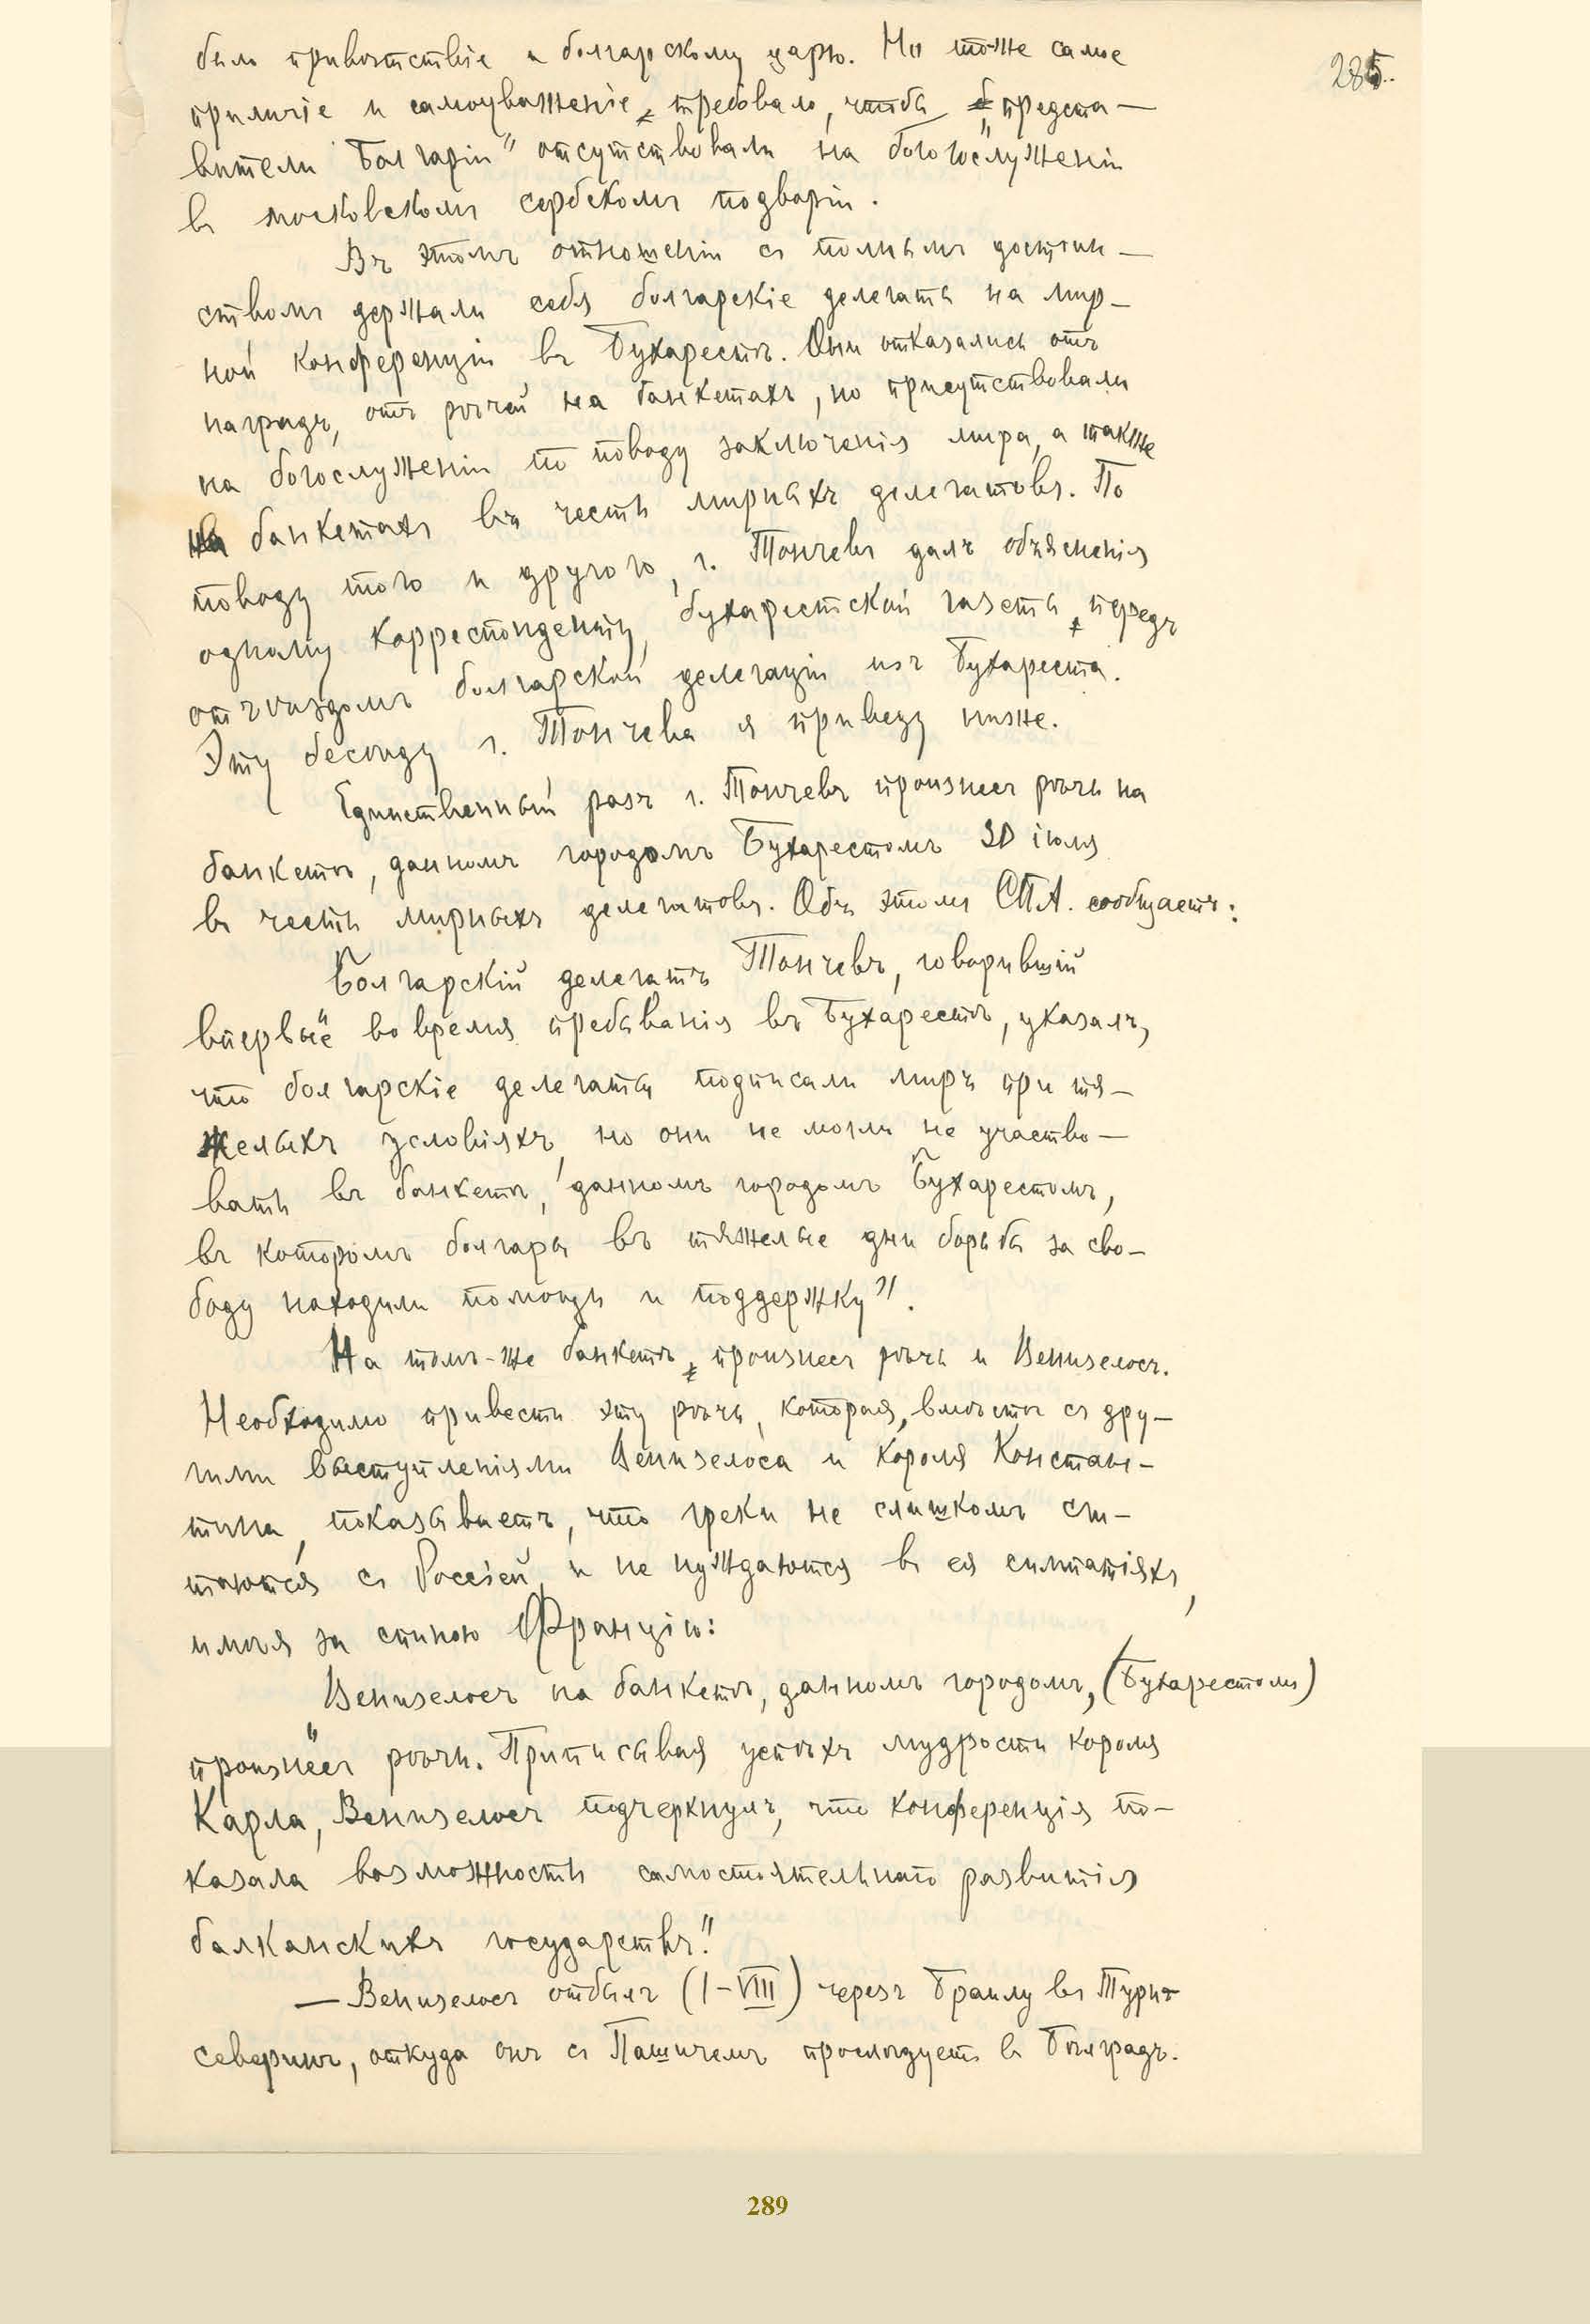 285.
было привѣтствіе и болгарскому царю. Но тоже самое
приличіе и самоуваженіе требовало, чтобы „предста-
вители Болгаріи" отсутствовали на богослуженіи
въ московскомъ сербскомъ подворіи.
Въ этомъ отношеніи съ полнымъ достоин-
ствомъ держали себя болгарскіе делегаты на мир-
ной конференціи въ Бухарестѣ. Они отказались отъ
наградъ, отъ рѣчей на банкетахъ, но присутствовали
на богослуженіи по поводу заключенія мира, а также
на банкетахъ въ честь мирныхъ делегатовъ. По
поводу того и другого, г. Тончевъ далъ объясненія
одному корреспонденту бухарестской газеты передъ
отъѣздомъ болгарской делегаціи изъ Бухареста.
Эту бесѣду г. Тончева я приведу ниже.
Единственный разъ г. Тончевъ произнесъ рѣчь на
банкетѣ, данномъ городомъ Бухарестомъ 30 іюля
въ честь мирныхъ делегатовъ. Объ этомъ СПА. сообщаетъ:
Болгарскій делегатъ Тончевъ, говорившій
впервые во время пребыванія въ Бухарестѣ, указалъ,
что болгарскіе делегаты подписали миръ при тя-
желыхъ условіяхъ, но они не могли не участво-
вать въ банкетѣ, данномъ городомъ Бухарестомъ,
въ которомъ болгары въ тяжелые дни борьбы за сво-
боду находили помощь и поддержку".
На томъ-же банкетѣ произнесъ рѣчь и Венизелосъ.
Необходимо привести эту рѣчь, которая, вмѣстѣ съ дру-
гими выступленіями Венизелоса и короля Констан-
тина, показываетъ, что греки не слишкомъ счи-
таются съ Россіей и не нуждаются въ ея симпатіяхъ,
имѣя за спиною Францію:
Венизелосъ на банкетѣ, данномъ городомъ, (Бухарестомъ)
произнёсъ рѣчь. Приписывая успѣхъ мудрости короля
Карла, Венизелосъ подчеркнулъ, что конференція по-
казала возможность самостоятельнаго развитія
балканскихъ государствъ."
— Венизелосъ отбылъ (1-VIII) черезъ Браилу въ Турнъ
северинъ, откуда онъ съ Пашичемъ прослѣдуетъ въ Бѣлградъ.
289